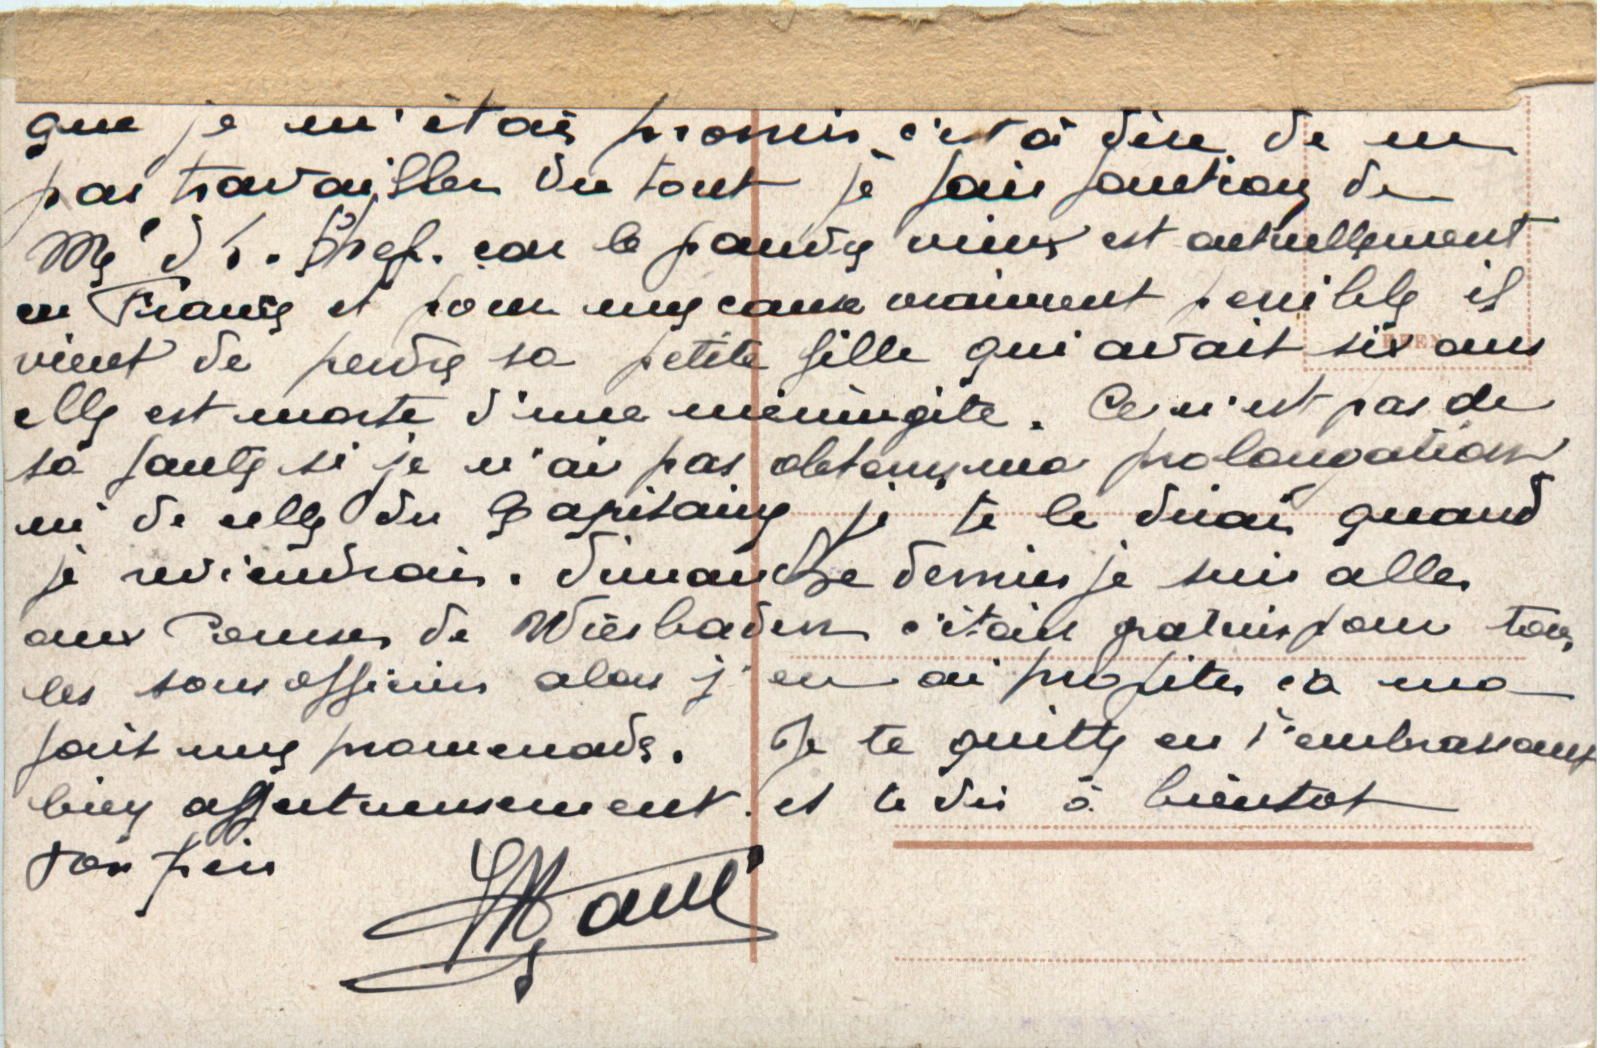 que je m'étais promis c'est à dire de ne
pas travailler du tout je fais fonction de
Mal d L. Chef. car le pauvre vieux est actuellement
en France et pour une cause vraiment penible il
vient de perdre sa petite fille qui avait six ans
elle est morte d'une méningite. Ce n'est pas de
sa faute si je n'ai pas obtenu ma prolongation
ni de celle du Capitaine je te le dirais quand
je reviendrais. dimanche dernier je suis aller
aux Courses de Wiesbaden c'était gratuis pour tous
les sous officiers alors j'en ai profiter ca ma
fait une promenade. Je te quitte en t'embrassant
bien affectueusement. et te dis à bientot
Ton frère